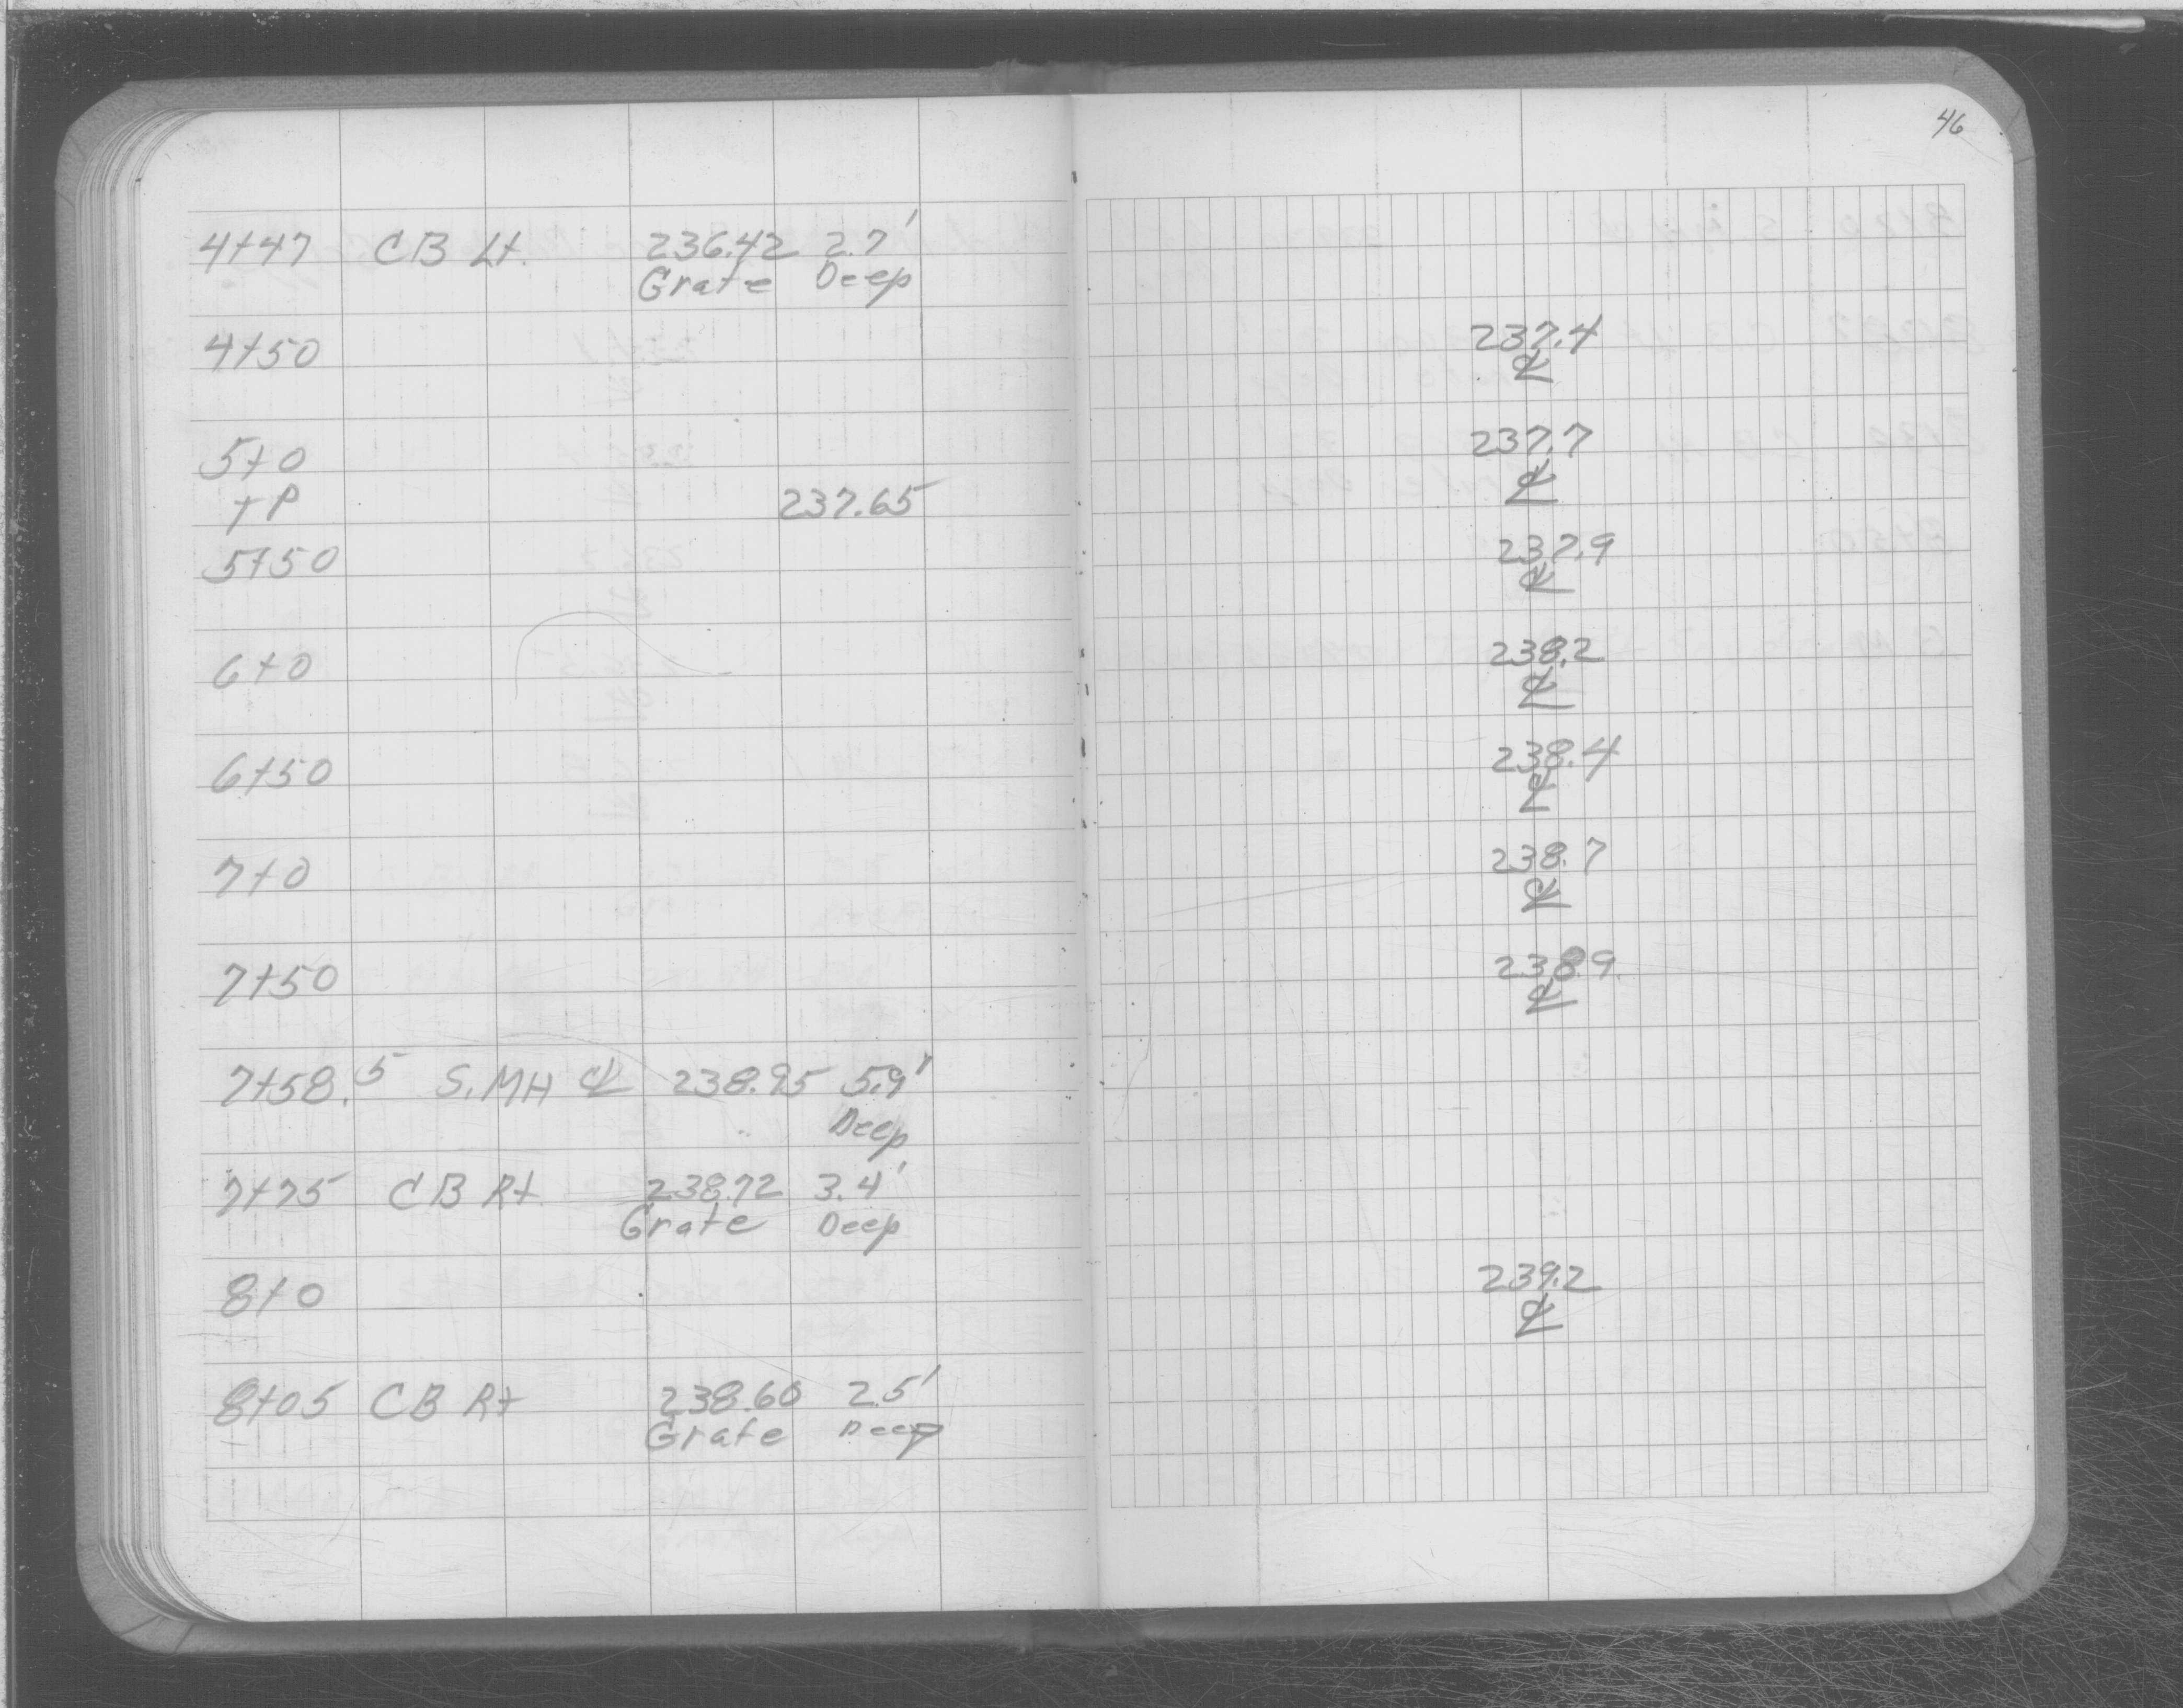 46
4+47 CB Lt. 236.42 2.7'
Grate Deep
4+50 237.4
℄
5+0 237.7
℄
TP 237.65
5+50 237.9
℄
6+0 238.2
℄
6+50 238.4
℄
7+0 238.7
℄
7+50 238.9
℄
7+58.5 S.MH ℄ 238.95 5.9'
Deep
7+75 CB Rt. 238.72 3.4'
Grate Deep
8+0 239.2
℄
8+05 CB Rt 238.60 2.5'
Grate Deep